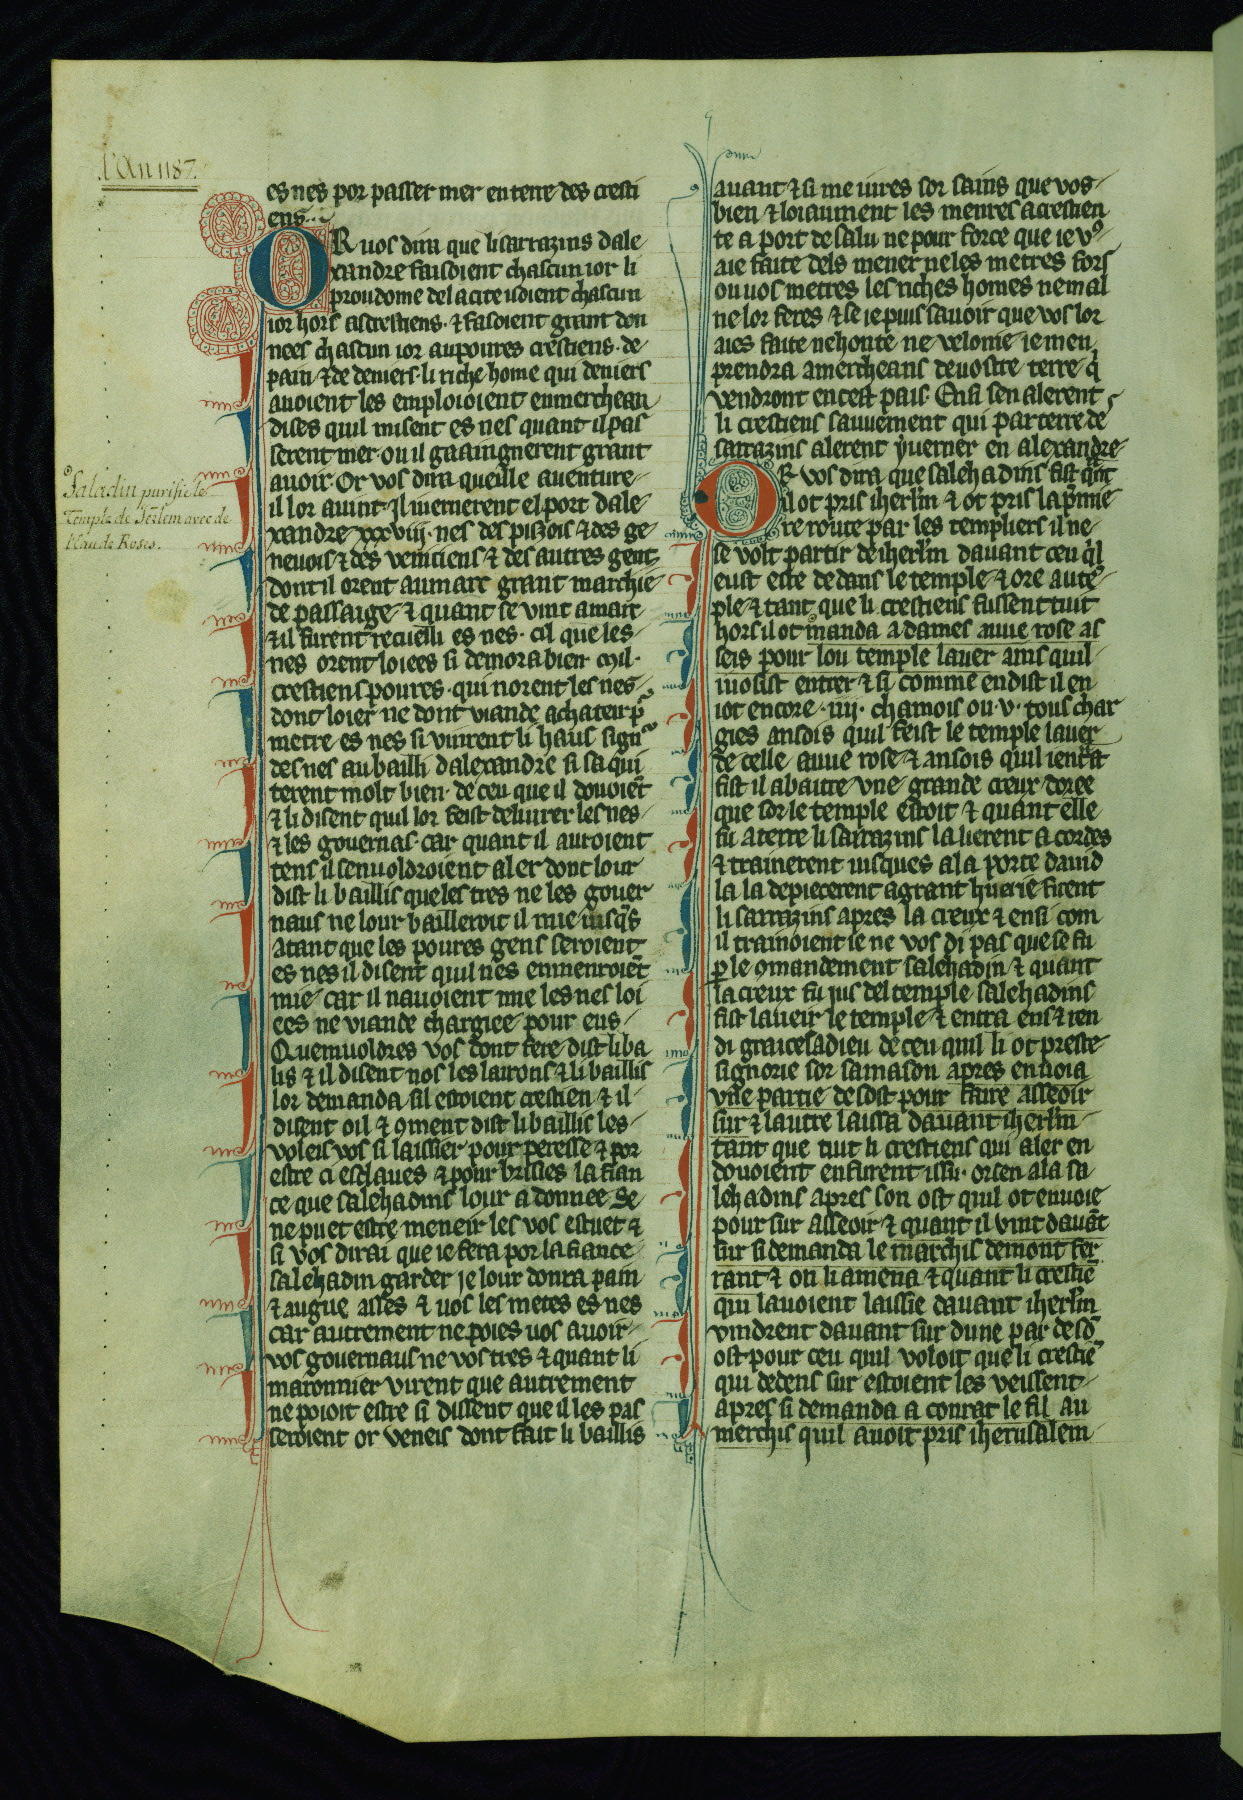 .l'An 1187.
es nes por passer mer en terre des cresti
ens...
OR uos dira que li sarrazins dale
xandre faisoient chascun ior li
proudome de la cite isoient chascun
ior hors as crestiens. & fasoient grant don
nees chascun ior au poures crestiens. de
pain & de deniers. li riche home qui deniers
auoient les emploioient en merchean
dises quil misent es nes quant il pas
serent mer. ou il gaaingnerent grant
auoir Or vos dira queille auenture
il lor auint. Il iuernerent el port dale
xandre xxxviij. nes des pizois & des ge
neuois & des veniciens & des autres gent
dont il orent au marc grant marchie
de passaige & quant se vint a mart
& il furent recuelli es nes. cil que les
nes orent loiees si demora bien .mil.
crestiens poures. qui norent les nes
dont loier ne dont viande achateir pͦ
metre es nes si vinrent li haus sign
des nes au bailli dalexandre si sa qui
terent molt bien. de ceu que il douoiẽt
& li disent quil lor feist deliurer les nes
& les gouernas. car quant il auroient
tens il sen uoldroient aler dont lour
dist li baillis que les tres ne les gouer
naus ne lour bailleroit il mie iusq̃s
atant que les poures gens seroient
es nes il disent quil nes enmenroiẽt
mie. car il nauoient mie les nes loi
ees ne viande chargiee pour eus
Quem uoldres vos dont fere dist li ba
lis & il disent nos les lairons & li baillis
lor demanda sil estoient crestien & il
disent oil & 9ment dist li baillis les
voleis vos si laissier pour peresse & por
estre ci esclaues & pour brisies la fian
ce que salehadins lour a donnee. Se
ne puet estre meneir les vos estuet &
si vos dirai que ie fera por la fiance
salehadin garder je lour donra pain
& augue asses & uos les metes es nes
car autrement ne poies uos auoir
vos gouernaus ne vos tres & quant li
maronnier virent que autrement
ne poioit estre si dissent que il les pas
seroient or veneis dont fait li baillis
Saladin purifie le
Temple de Jer̃lem avec de
l'Eau de Roses.
auant & si me iures sor sains que vos
bien & loiaument les menres a crestien
te a port de salu ne pour force que ie vͦ
aie faite dels mener ne les metres fors
ou uos metres les riches homes ne mal
ne lor feres & se ie puis sauoir que vos lor
aies faite ne honte ne velonie ie men
prendra a mercheans de uostre terre q̃
vendront en cest pais. Ensi sen alerent
li crestiens sauuement qui par terre de
sarrazins alerent yuerner en alexandre
OR vos dira que salehadins fist q̃nt
il ot pris iherlm̃ & ot pris la p̃mie
re route par les templiers il ne
se volt partir de iherlm̃ dauant ceu q̃l
eust este dedans le temple & ore au tẽ
ple & tant que li crestiens fussent tuit
hors il ot manda a dames auue rose as
seis pour lou temple lauer ains quil
iuosist entrer & si comme en dist il en
iot encore. iiij. chamois ou .v. tous char
gies ansois quil feist le temple lauer
de celle auue rose & ansois quil ientrast
fist il abaitre vne grande creux doree
que sor le temple estoit & quant elle
fu a terre li sarrazins la lierent a cordes
& trainerent iusques a la porte dauid
la la depiecerent a grant huerie ficent
li sarrazins apres la creux & ensi com
il trainoient ie ne vos di pas que se fu
p̱ le 9mandement salehadin & quant
la creux fu ius del temple salehadins
fist laueir le temple & entra ens & ren
di graices a dieu de ceu quil li ot preste
signorie sor sa mason apres enuoia
vne partie de sost pour faire asseoir
sur & lautre laissa dauant iherlm̃
tant que tuit li crestiens qui aler en
douoient en furent issu. or sen ala sa
lehadins apres son ost quil ot enuoie
pour sur asseoir & quant il vint dauãt
sur si demanda le marchis de mont fer
rant & on li amena & quant li crestiẽ
qui lauoient laissie dauant iherlm̃
vindrent dauant sur dune par de sõ
ost pour ceu quil voloit que li crestiẽ
qui dedens sur estoient les veissent
apres si demanda a conrat le fil au
merchis quil auoit pris iherusalem